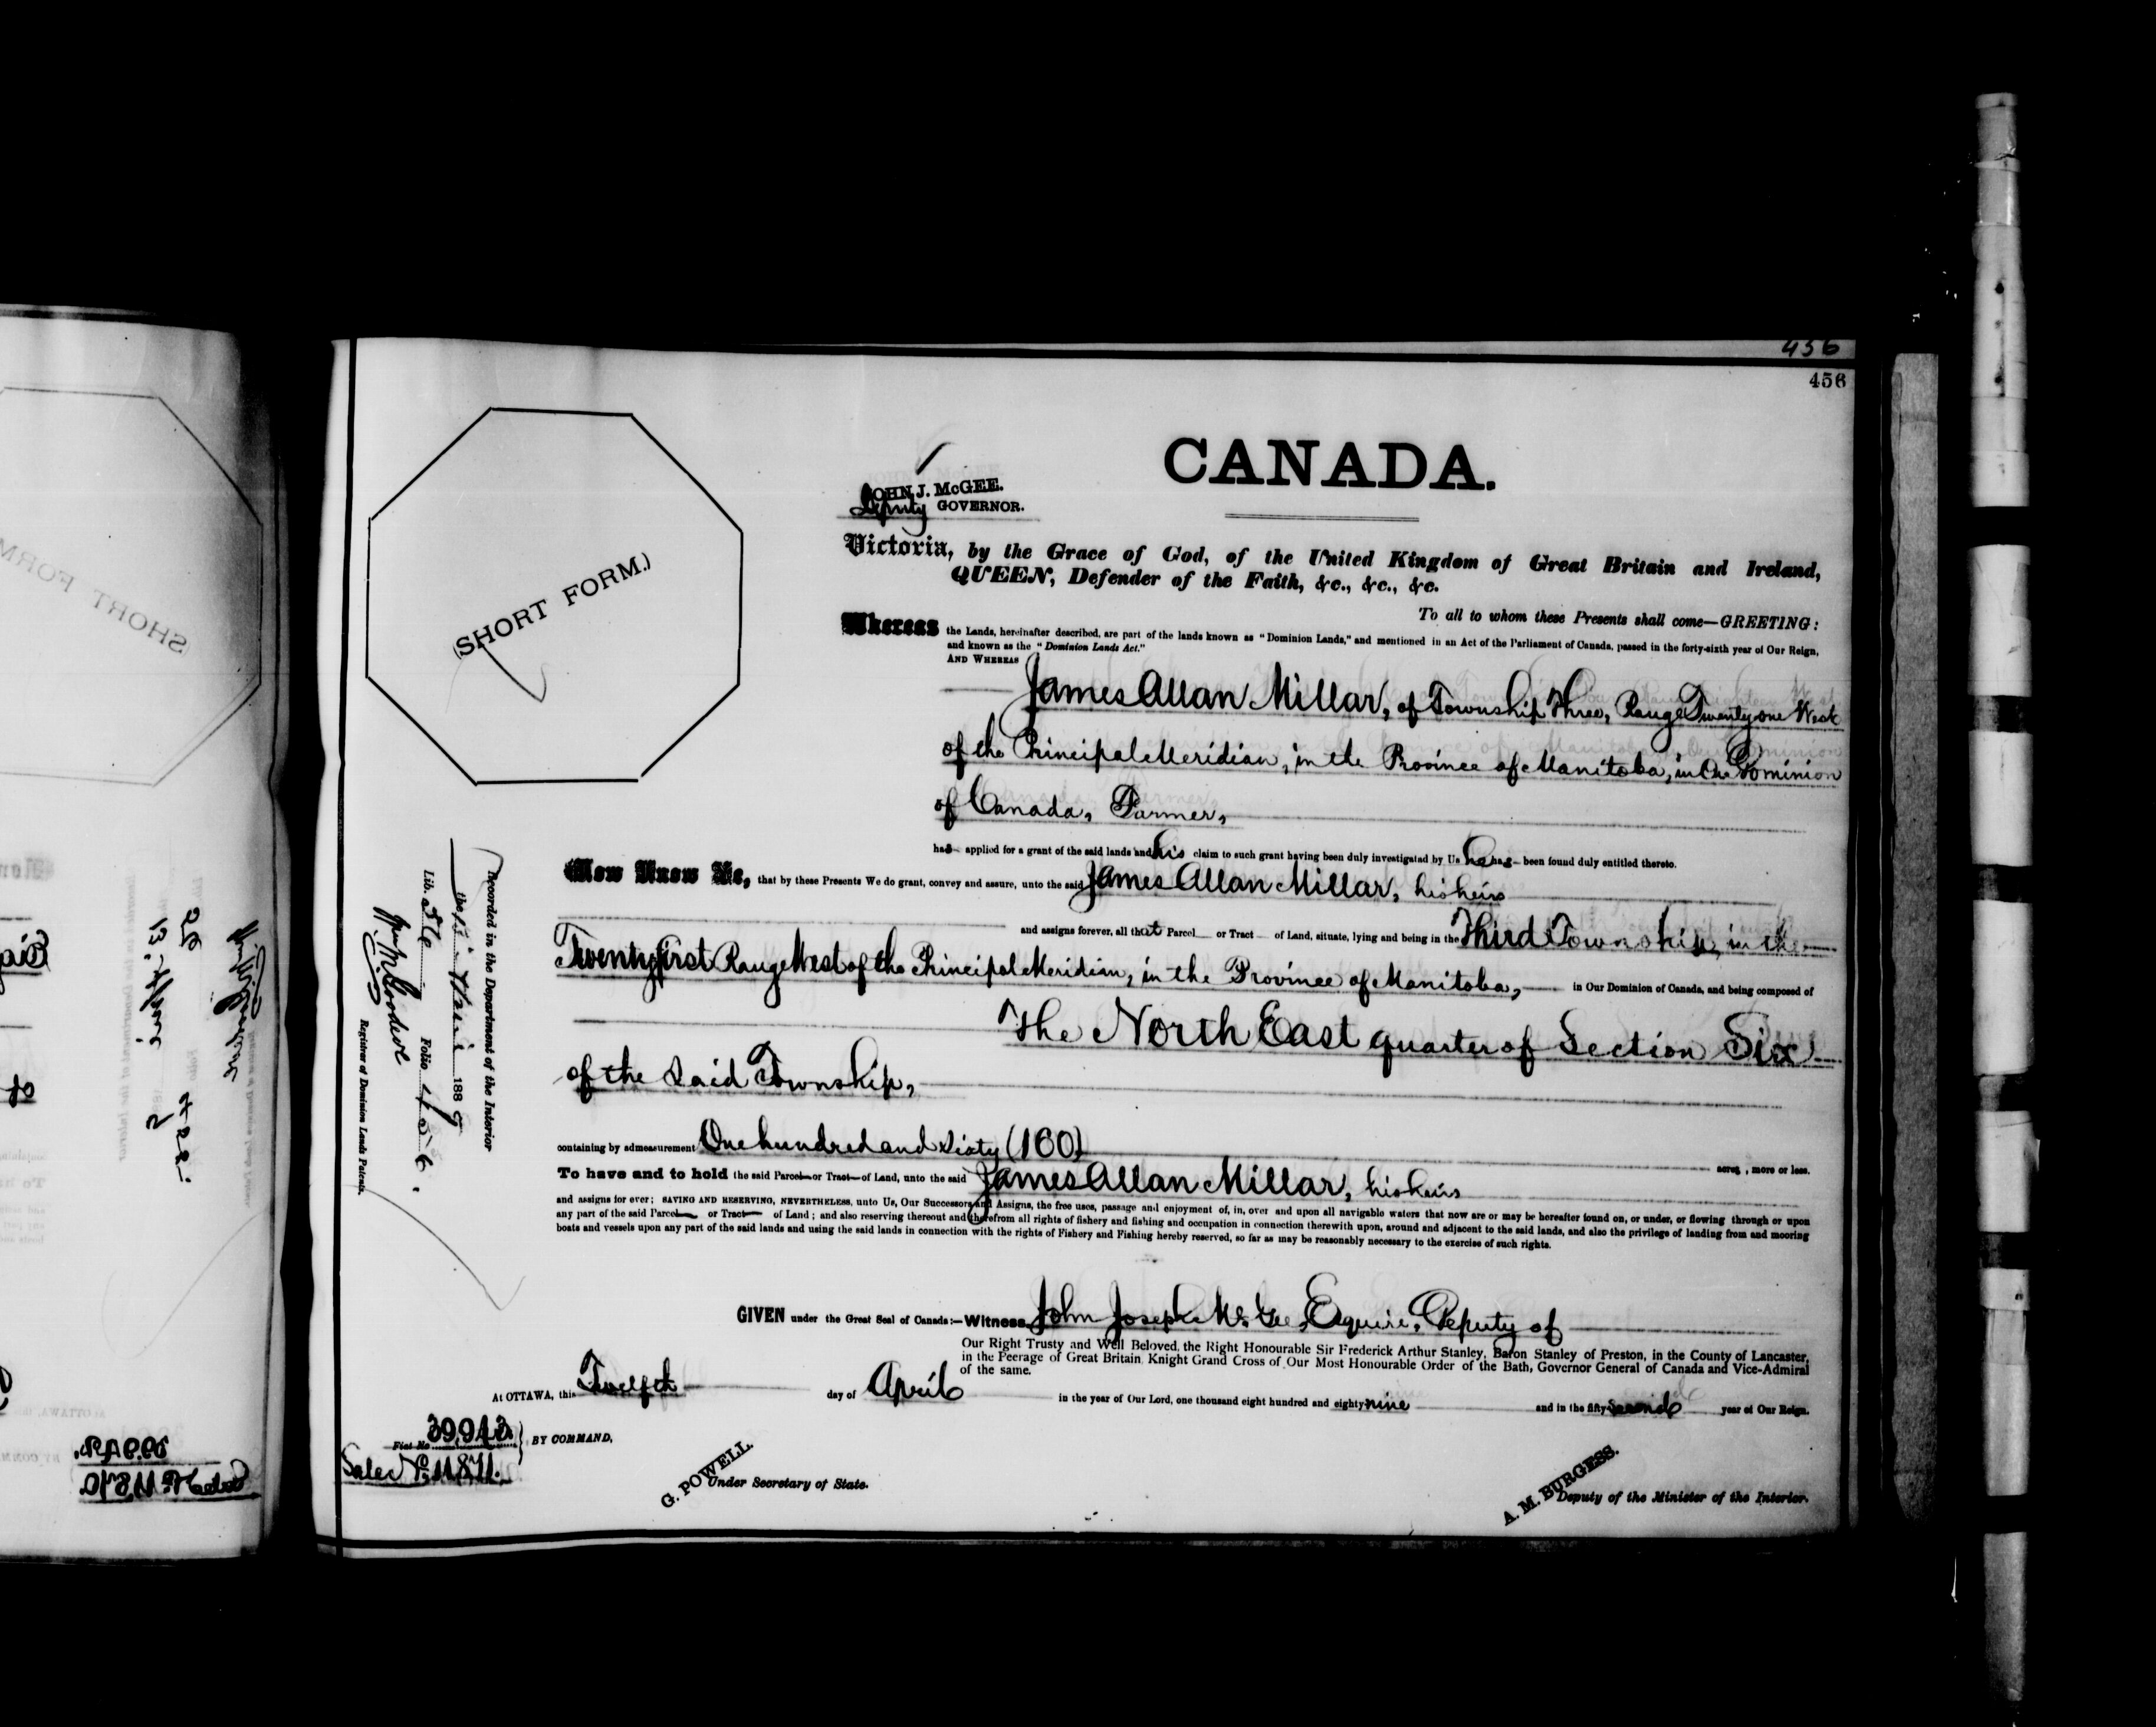 456
456
CANADA.
JOHN J. McGEE.
Deputy GOVERNOR.
(SHORT FORM.)
Victoria, by the Grace of God, of the United Kingdom of Great Britain and Ireland,
QUEEN, Defender of the Faith, &c., &c., &c.
To all to whom these Presents shall come—GREETING:
Whereas the Lands, hereinafter described, are part of the lands known as "Dominion Lands," and mentioned in an Act of the Parliament of Canada, passed in the forty-sixth year of Our Reign,
and known as the "Dominion Lands Act."
AND WHEREAS
James Allan Millar, of Township Three, Range Twenty one West
of the Principal Meridian, in the Province of Manitoba, in the Dominion
of Canada, Farmer,
has applied for a grant of the said lands and his claim to such grant having been duly investigated by Us he has been found duly entitled thereto.
Now Know Ye, that by these Presents We do grant, convey and assure, unto the said James Allan Millar, his heirs
and assigns forever, all that Parcel or Tract of Land, situate, lying and being in the Third Township, in the
Twenty first Range West of the Principal Meridian, in the Province of Manitoba, in Our Dominion of Canada, and being composed of
The North East quarter of Section Six
of the said Township,
containing by admeasurement One hundred and sixty (160)
acres, more or less.
To have and to hold the said Parcel or Tract of Land, unto the said James Allan Millar, his heirs
and assigns for ever; SAVING AND RESERVING, NEVERTHELESS, unto Us, Our Successors and Assigns, the free uses, passage and enjoyment of, in, over and upon all navigable waters that now are or may be hereafter found on, or under, or flowing through or upon
any part of the said Parcel or Tract of Land; and also reserving thereout and therefrom all rights of fishery and fishing and occupation in connection therewith upon, around and adjacent to the said lands, and also the privilege of landing from and mooring
boats and vessels upon any part of the said lands and using the said lands in connection with the rights of Fishery and Fishing hereby reserved, so far as may be reasonably necessary to the exercise of such rights.
GIVEN under the Great Seal of Canada:—Witness John Joseph McGee, Esquire, Deputy of
Our Right Trusty and Well Beloved, the Right Honourable Sir Frederick Arthur Stanley, Baron Stanley of Preston, in the County of Lancaster,
in the Peerage of Great Britain, Knight Grand Cross of Our Most Honourable Order of the Bath, Governor General of Canada and Vice-Admiral
of the same.
At OTTAWA, this Twelfth day of April in the year of Our Lord, one thousand eight hundred and eighty nine and in the fifty second year of Our Reign.
Fiat No 39943.
BY COMMAND,
Sales No. 11871.
G. POWELL.
Under Secretary of State.
A. M. BURGESS.
Deputy of the Minister of the Interior.
Recorded in the Department of the Interior
the April 1889
Lib. Folio 456.
Registrar of Dominion Lands Patents.
SHORT FORM